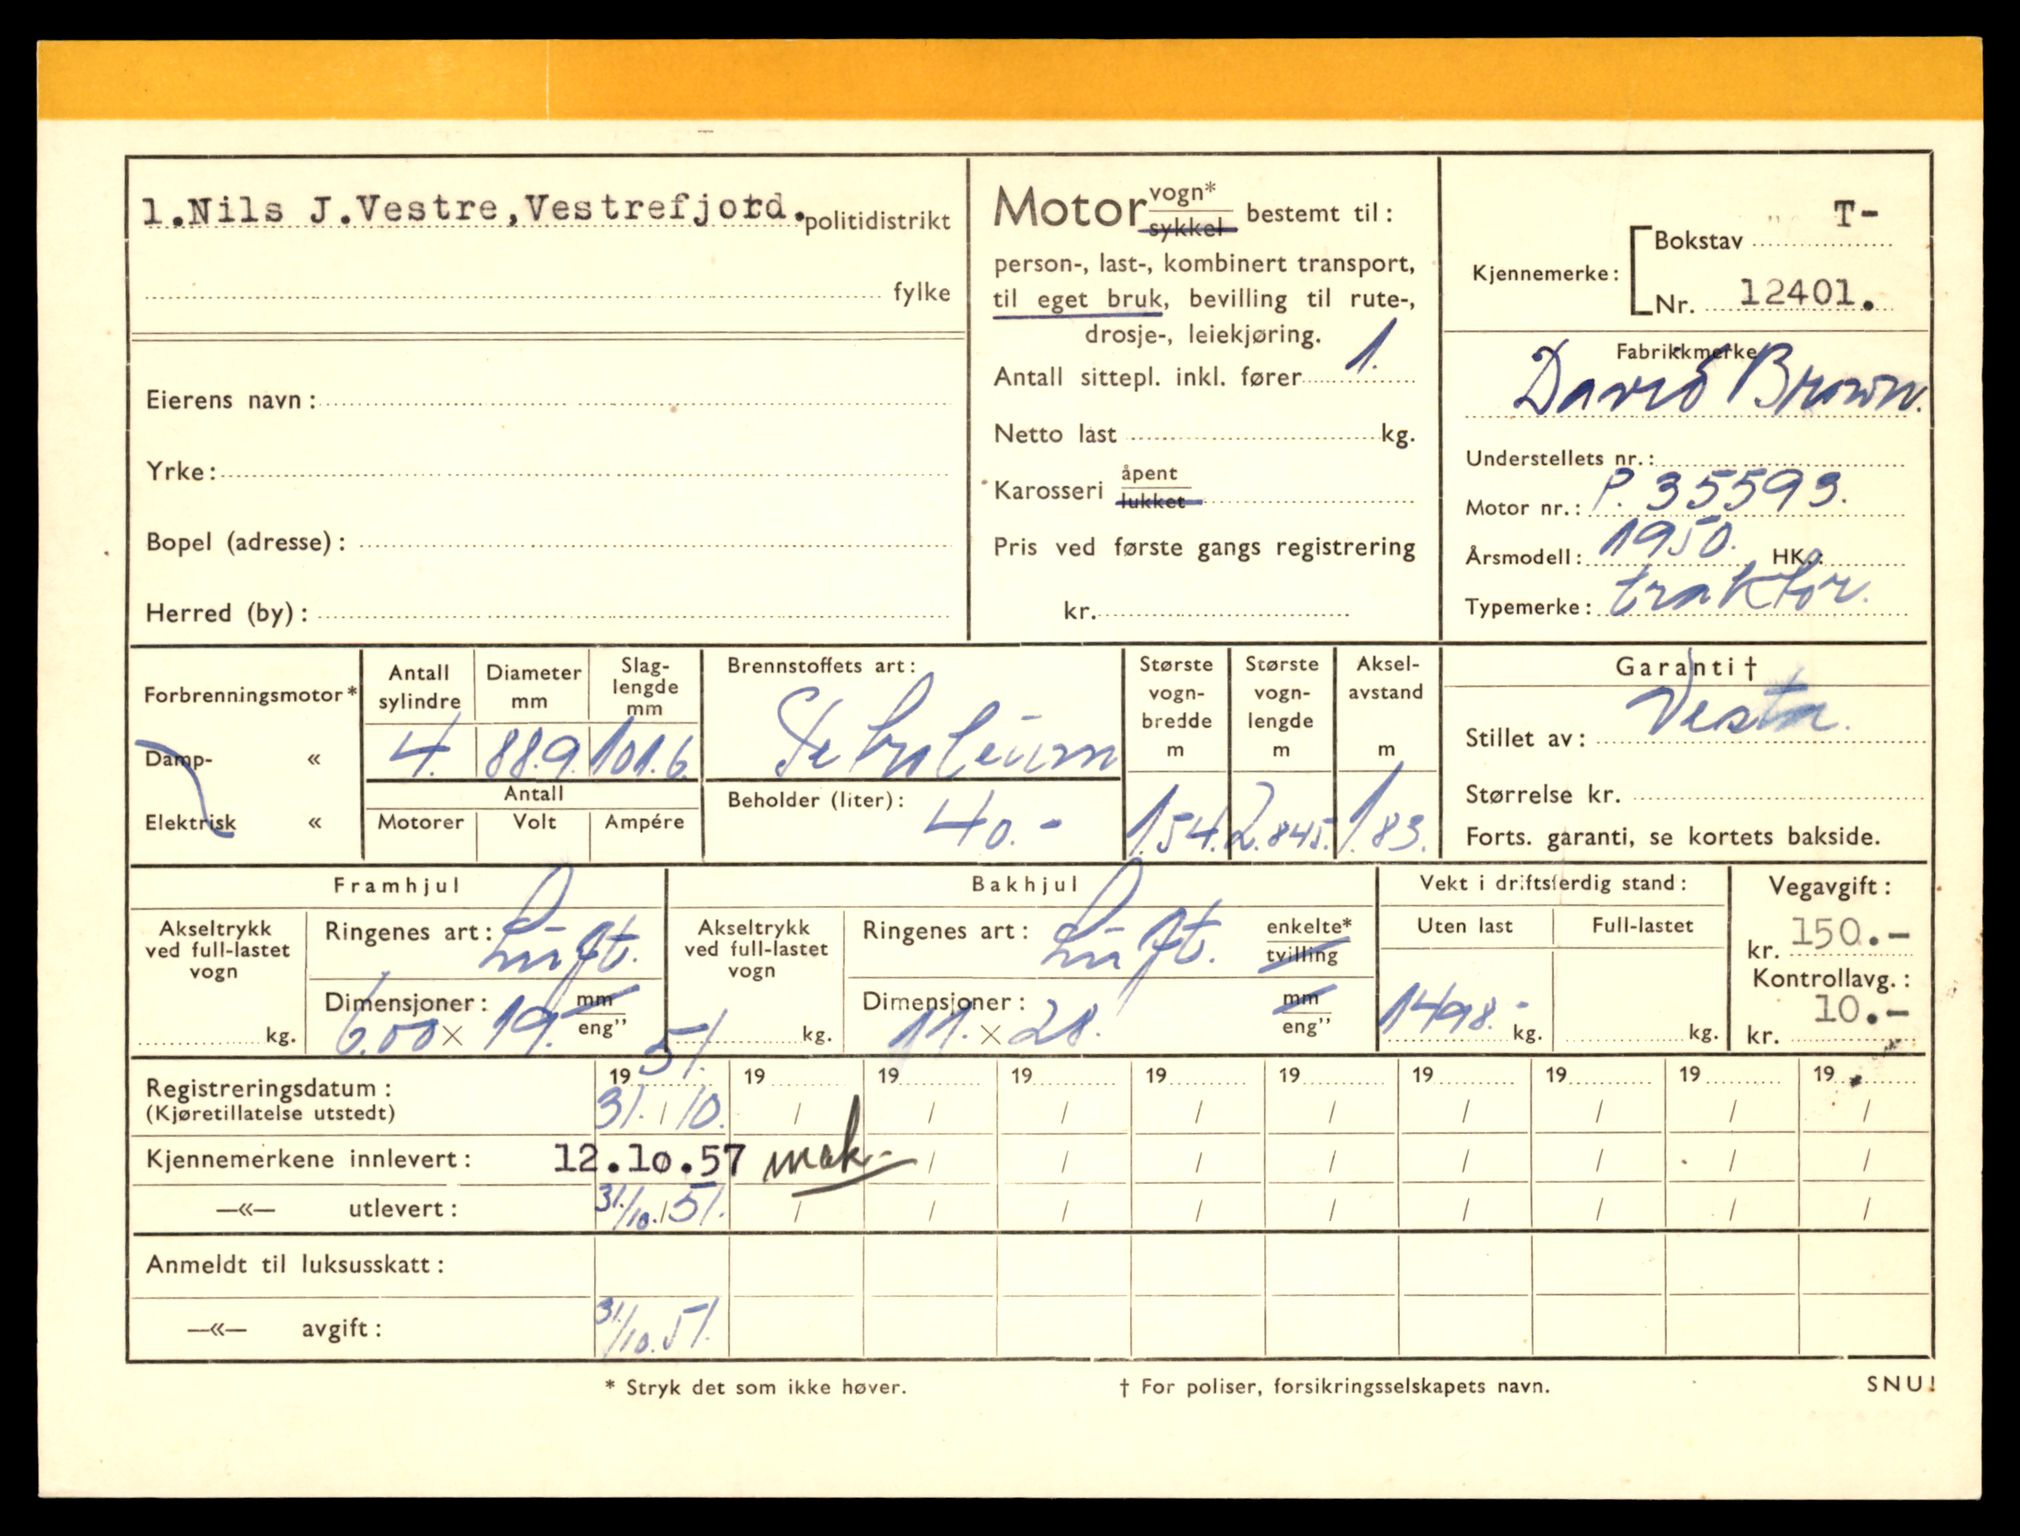 1.Nils J.Vestre,Vestrefjord. politidistrikt
fylke
Eierens navn :
Yrke :
Bopel (adresse) :
Herred (by) :
Motor vogn* sykkel bestemt til :
person-, last-, kombinert transport,
til eget bruk, bevilling til rute-,
drosje-, leiekjøring.
Antall sittepl. inkl. fører 1.
Netto last kg.
Karosseri åpent lukket
Pris ved første gangs registrering
kr.
Kjennemerke : Bokstav T-
Nr. 12401.
Fabrikkmerke
David Brown.
Understellets nr. :
Motor nr. : P. 35593.
Årsmodell : 1950. HK. :
Typemerke : traktor.
Forbrenningsmotor*
Damp- «
Elektrisk «
Antall sylindre
4.
Diameter mm
88.9.
Slag-lengde mm
101.6
Antall
Motorer Volt Ampére
Brennstoffets art :
Petroleum
Beholder (liter) : 40.-
Største vogn-bredde m
1.54.
Største vogn-lengde m
2.845.
Aksel-avstand m
1.83.
Garanti †
Stillet av : Vesta.
Størrelse kr.
Forts. garanti, se kortets bakside.
Framhjul
Akseltrykk ved full-lastet vogn
kg.
Ringenes art : Luft.
Dimensjoner : mm
6.00 × 19. eng”
Bakhjul
Akseltrykk ved full-lastet vogn
kg.
Ringenes art : Luft. enkelte* tvilling
Dimensjoner : mm
11. × 28. eng”
Vekt i driftsferdig stand :
Uten last Full-lastet
1498.- kg. kg.
Vegavgift :
kr. 150.-
Kontrollavg. :
kr. 10.-
Registreringsdatum : 19 51. 19 19 19 19 19 19 19 19 19
(Kjøretillatelse utstedt) 31. / 10. / / / / / / / / /
Kjennemerkene innlevert : 12.10.57 mak- / / / / / / / /
—«— utlevert : 31./10. 51. / / / / / / / / /
Anmeldt til luksusskatt :
—«— avgift : 31/10.51.
* Stryk det som ikke høver.
† For poliser, forsikringsselskapets navn.
SNU!